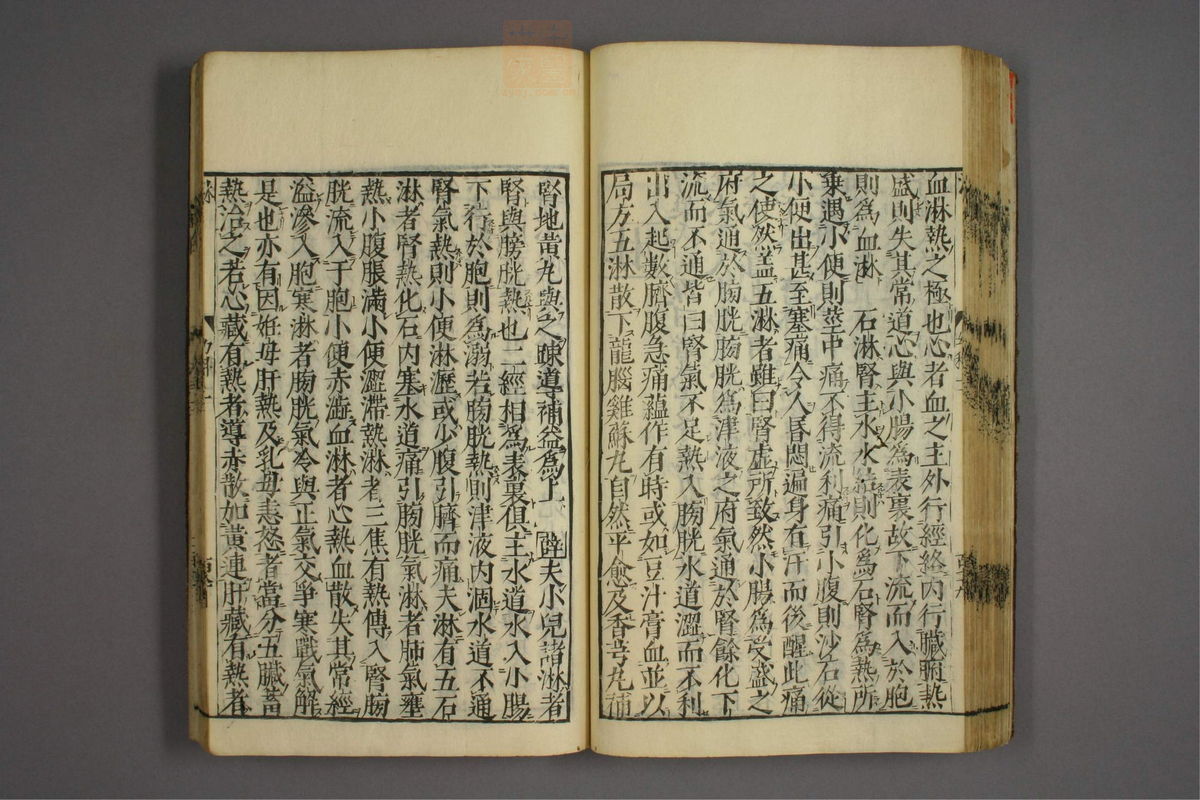 血淋熱之極也心者血之主外行經絡內行臟腑熱
盛則失其常道心與小腸爲表裏故下流而入於胞
則爲血淋　石淋腎主水水結則化爲石腎爲熱所
乗遇小便則莖中痛不得流利痛引小腹則沙石從
小便出甚至塞痛令人昏悶遍身有汗而後醒此痛
之使然盖五淋者雖曰腎虚所致然小腸爲受盛之
府氣通於胸胱胸胱爲津液之府氣通於腎餘化下
流而不通皆曰腎氣不足熱入胸胱水道澀而不利
出入起數臍腹急痛蘊作有時或如豆汁膏血並以
局方五淋散下龍腦雞蘇丸自然平愈及香芎丸補
腎地黄丸與之踈導補益爲上　薛夫小兒諸淋者
腎與膀胱熱也二經相爲表裏俱主水道水入小腸
下行於胞則爲溺若胸胱熱則津液内涸水道不通
腎氣熱則小便淋瀝或少腹引臍而痛夫淋有五石
淋者腎熱化石内塞水道痛引胸胱氣淋者肺氣壅
熱小腹脹滿小便澀滯熱淋者三焦有熱傳入腎胸
胱流入于胞小便赤澁血淋者心熱血散失其常經
溢滲入胞寒淋者胸胱氣冷與正氣交爭寒戰氣解
是也亦有因妊母肝熱及乳母恚怒者當分五臟蓄
熱治之若心藏有熱者導赤散加黃連肝藏有熱者